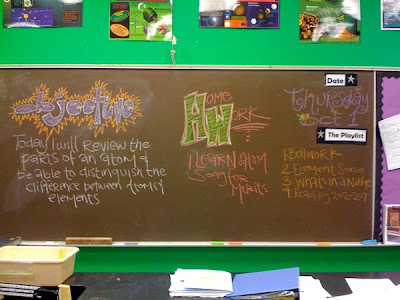 objective
Today I will Review the
parts of an atom &
be able to distinguish the
difference between Atoms &
elements
Home
Work
1 Learn atom
Song for
Merits
Date
Thursday
Oct 1
The Playlist
1. Bellwork
2. Element Song
3. What's in a Name
4. Read pg 202-207